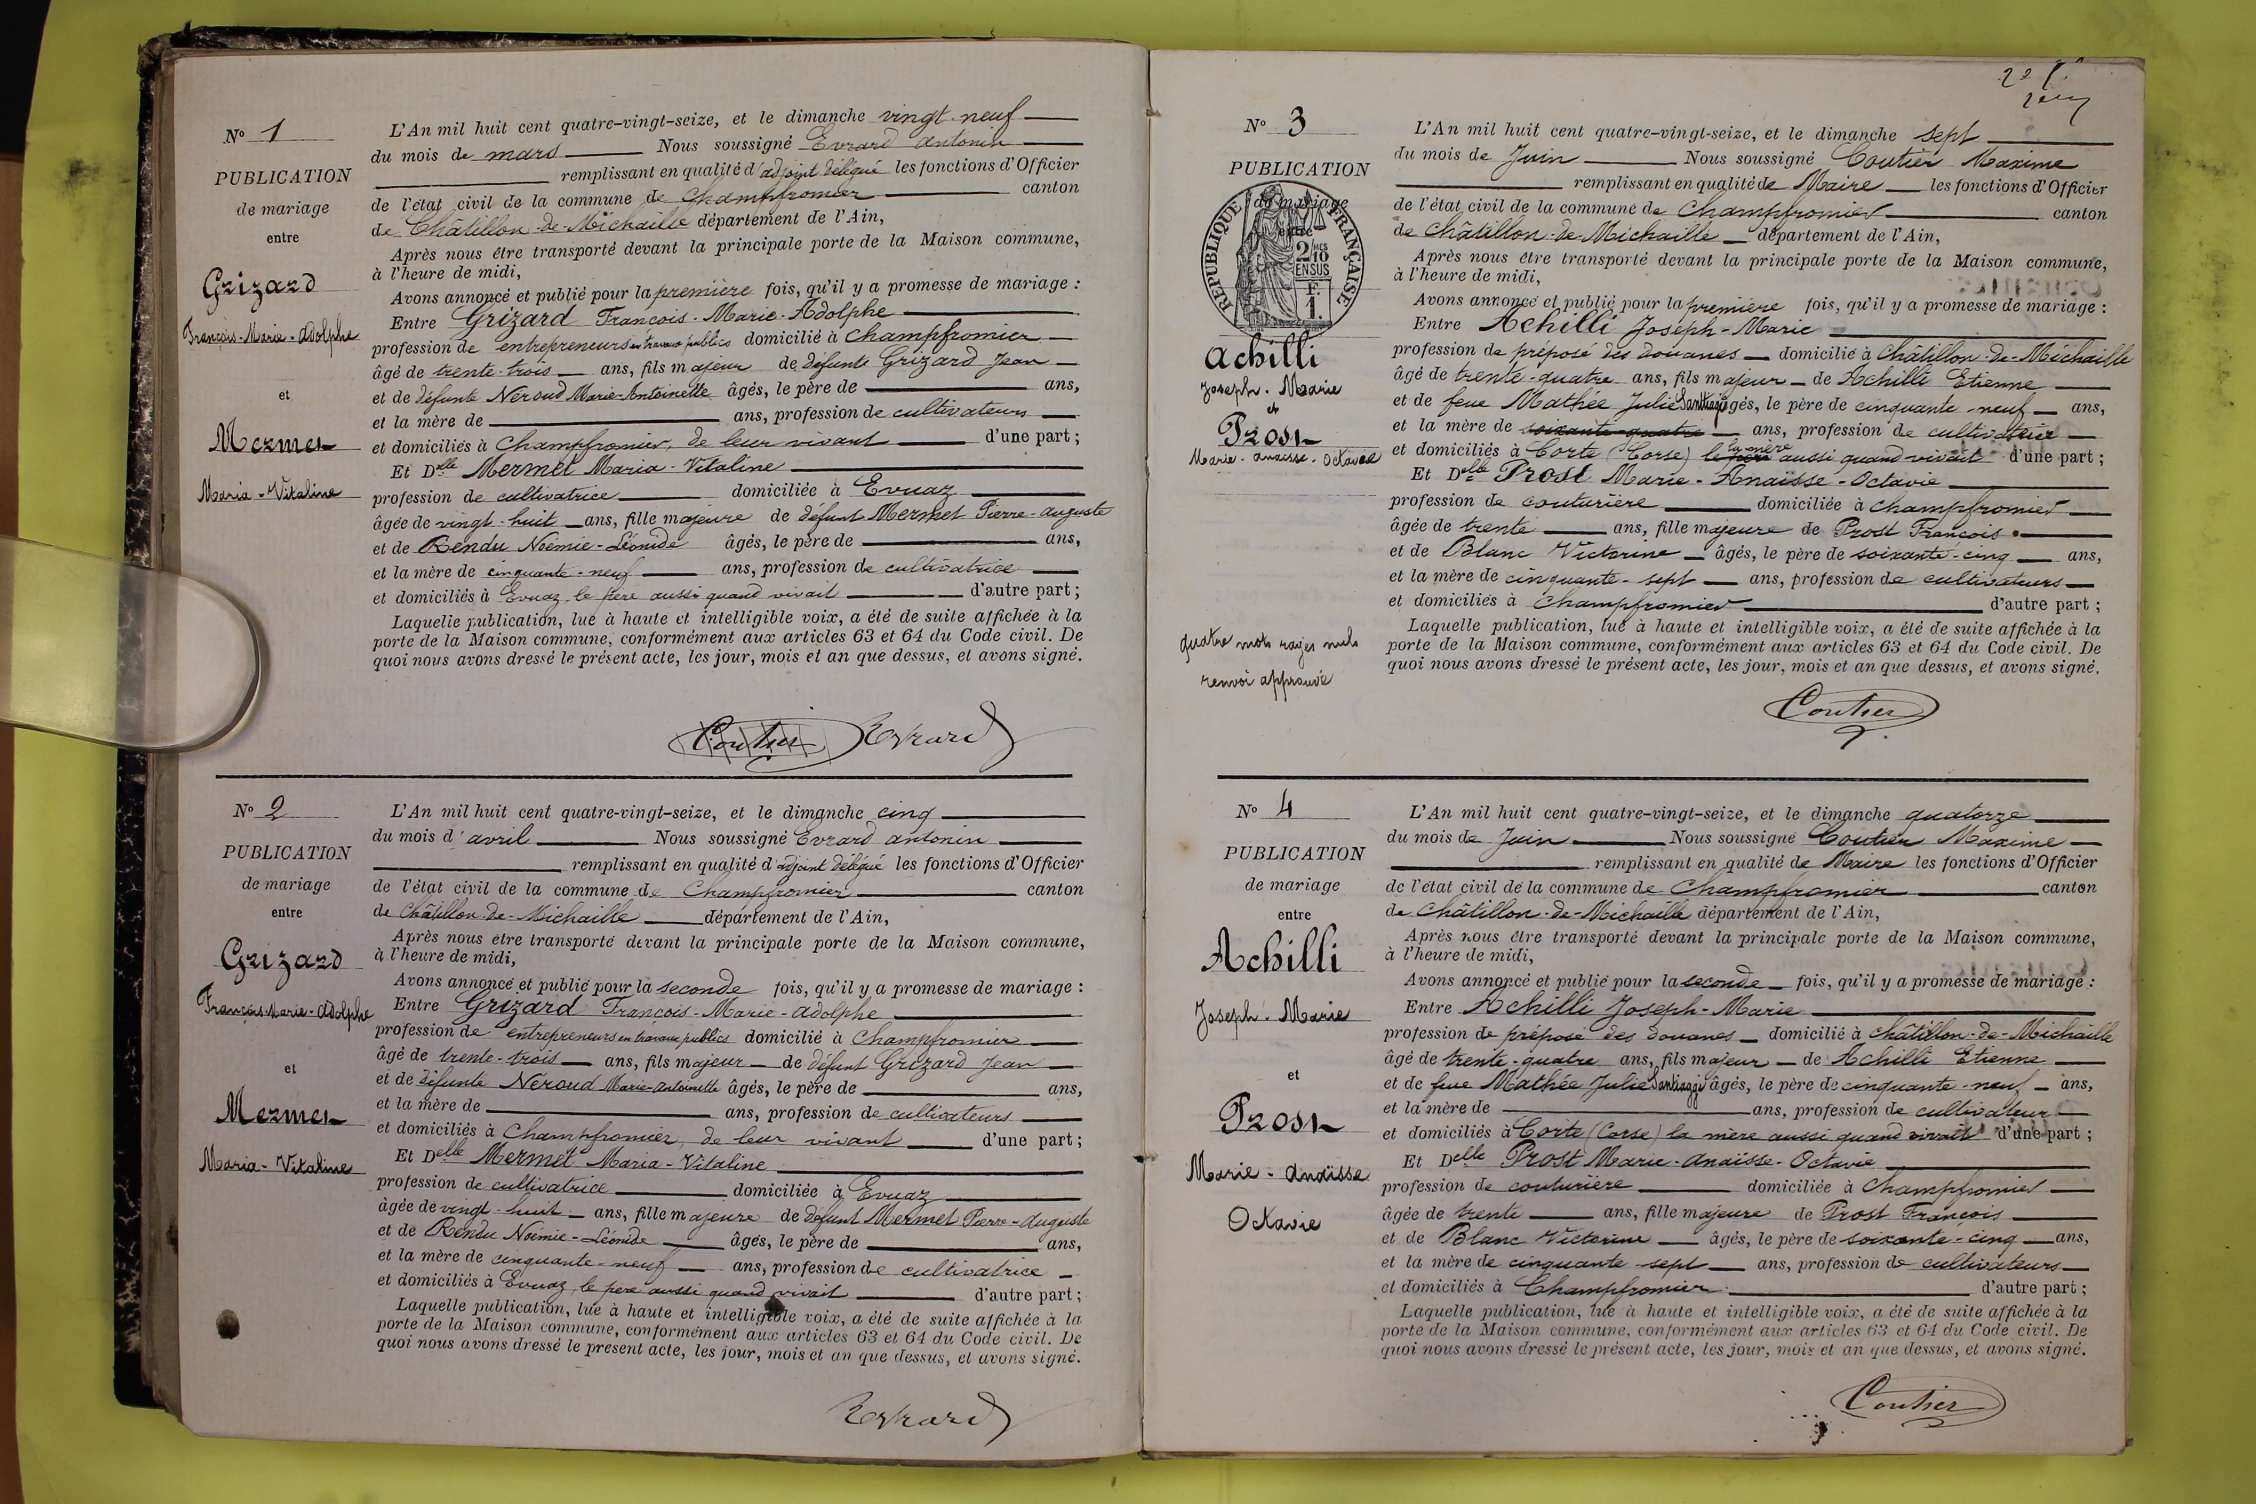 N° 1
PUBLICATION
de mariage
entre
Grizard
François-Marie-Adolphe
et
Mermet
Maria-Vitaline
L'An mil huit cent quatre-vingt-seize, et le dimanche vingt-neuf
du mois de mars Nous soussigné Evrard Antonin
remplissant en qualité d'adjoint délégué les fonctions d'Officier
de l'état civil de la commune de Champfromier canton
de Châtillon-de-Michaille département de l'Ain,
Après nous être transporté devant la principale porte de la Maison commune,
à l'heure de midi,
Avons annoncé et publié pour la première fois, qu'il y a promesse de mariage :
Entre Grizard François-Marie-Adolphe
profession de entrepreneurs en travaux publics domicilié à Champfromier
âgé de trente-trois ans, fils majeur de défunte Grizard Jean
et de défunte Néroud Marie-Antoinette âgés, le père de ans,
et la mère de ans, profession de cultivateurs
et domiciliés à Champfromier, de leur vivant d'une part ;
Et Delle Mermet Maria-Vitaline
profession de cultivatrice domiciliée à Evuaz
âgée de vingt-huit ans, fille majeure de défunt Mermet Pierre-Auguste
et de Rendu Noémie-Léonide âgés, le père de ans,
et la mère de cinquante-neuf ans, profession de cultivatrice
et domiciliés à Evuaz, le père aussi quand vivait d'autre part ;
Laquelle publication, lue à haute et intelligible voix, a été de suite affichée à la
porte de la Maison commune, conformément aux articles 63 et 64 du Code civil. De
quoi nous avons dressé le présent acte, les jour, mois et an que dessus, et avons signé.
Coutier Evrard
N° 2
PUBLICATION
de mariage
entre
Grizard
François-Marie-Adolphe
et
Mermet
Maria-Vitaline
L'An mil huit cent quatre-vingt-seize, et le dimanche cinq
du mois d'avril Nous soussigné Evrard Antonin
remplissant en qualité d'adjoint délégué les fonctions d'Officier
de l'état civil de la commune de Champfromier canton
de Châtillon-de-Michaille département de l'Ain,
Après nous être transporté devant la principale porte de la Maison commune,
à l'heure de midi,
Avons annoncé et publié pour la seconde fois, qu'il y a promesse de mariage :
Entre Grizard François-Marie-Adolphe
profession de entrepreneurs en travaux publics domicilié à Champfromier
âgé de trente-trois ans, fils majeur de défunt Grizard Jean
et de défunte Néroud Marie-Antoinette âgés, le père de ans,
et la mère de ans, profession de cultivateurs
et domiciliés à Champfromier, de leur vivant d'une part ;
Et Delle Mermet Maria-Vitaline
profession de cultivatrice domiciliée à Evuaz
âgée de vingt-huit ans, fille majeure de défunt Mermet Pierre-Auguste
et de Rendu Noémie-Léonide âgés, le père de ans,
et la mère de cinquante-neuf ans, profession de cultivatrice
et domiciliés à Evuaz, le père aussi quand vivait d'autre part ;
Laquelle publication, lue à haute et intelligible voix, a été de suite affichée à la
porte de la Maison commune, conformément aux articles 63 et 64 du Code civil. De
quoi nous avons dressé le présent acte, les jour, mois et an que dessus, et avons signé.
Evrard
N° 3
PUBLICATION
de mariage
entre
RÉPUBLIQUE FRANÇAISE
2/10 EN SUS
F. 1.
Achilli
Joseph-Marie
et
Prost
Marie-Anaïsse-Octavie
quatre mots rayés nuls
renvoi approuvé
L'An mil huit cent quatre-vingt-seize, et le dimanche sept
du mois de Juin Nous soussigné Coutier Maxime
remplissant en qualité de Maire les fonctions d'Officier
de l'état civil de la commune de Champfromier canton
de Châtillon-de-Michaille département de l'Ain,
Après nous être transporté devant la principale porte de la Maison commune,
à l'heure de midi,
Avons annoncé et publié pour la première fois, qu'il y a promesse de mariage :
Entre Achilli Joseph-Marie
profession de préposé des douanes domicilié à Châtillon-de-Michaille
âgé de trente-quatre ans, fils majeur de Achilli Etienne
et de feue Mathée Julie Santiaggi âgés, le père de cinquante-neuf ans,
et la mère de soixante-quatre ans, profession de cultivatrice
et domiciliés à Corte (Corse) le père la mère aussi quand vivait d'une part ;
Et Delle Prost Marie-Anaïsse-Octavie
profession de couturière domiciliée à Champfromier
âgée de trente ans, fille majeure de Prost François
et de Blanc Victorine âgés, le père de soixante-cinq ans,
et la mère de cinquante-sept ans, profession de cultivateurs
et domiciliés à Champfromier d'autre part ;
Laquelle publication, lue à haute et intelligible voix, a été de suite affichée à la
porte de la Maison commune, conformément aux articles 63 et 64 du Code civil. De
quoi nous avons dressé le présent acte, les jour, mois et an que dessus, et avons signé.
Coutier
N° 4
PUBLICATION
de mariage
entre
Achilli
Joseph-Marie
et
Prost
Marie-Anaïsse
Octavie
L'An mil huit cent quatre-vingt-seize, et le dimanche quatorze
du mois de Juin Nous soussigné Coutier Maxime
remplissant en qualité de Maire les fonctions d'Officier
de l'état civil de la commune de Champfromier canton
de Châtillon-de-Michaille département de l'Ain,
Après nous être transporté devant la principale porte de la Maison commune,
à l'heure de midi,
Avons annoncé et publié pour la seconde fois, qu'il y a promesse de mariage :
Entre Achilli Joseph-Marie
profession de préposé des douanes domicilié à Châtillon-de-Michaille
âgé de trente-quatre ans, fils majeur de Achilli Etienne
et de feue Mathée Julie Santiaggi âgés, le père de cinquante-neuf ans,
et la mère de ans, profession de cultivateur
et domiciliés à Corte (Corse) la mère aussi quand vivait d'une part ;
Et Delle Prost Marie-Anaïsse-Octavie
profession de couturière domiciliée à Champfromier
âgée de trente ans, fille majeure de Prost François
et de Blanc Victorine âgés, le père de soixante-cinq ans,
et la mère de cinquante-sept ans, profession de cultivateurs
et domiciliés à Champfromier d'autre part ;
Laquelle publication, lue à haute et intelligible voix, a été de suite affichée à la
porte de la Maison commune, conformément aux articles 63 et 64 du Code civil. De
quoi nous avons dressé le présent acte, les jour, mois et an que dessus, et avons signé.
Coutier